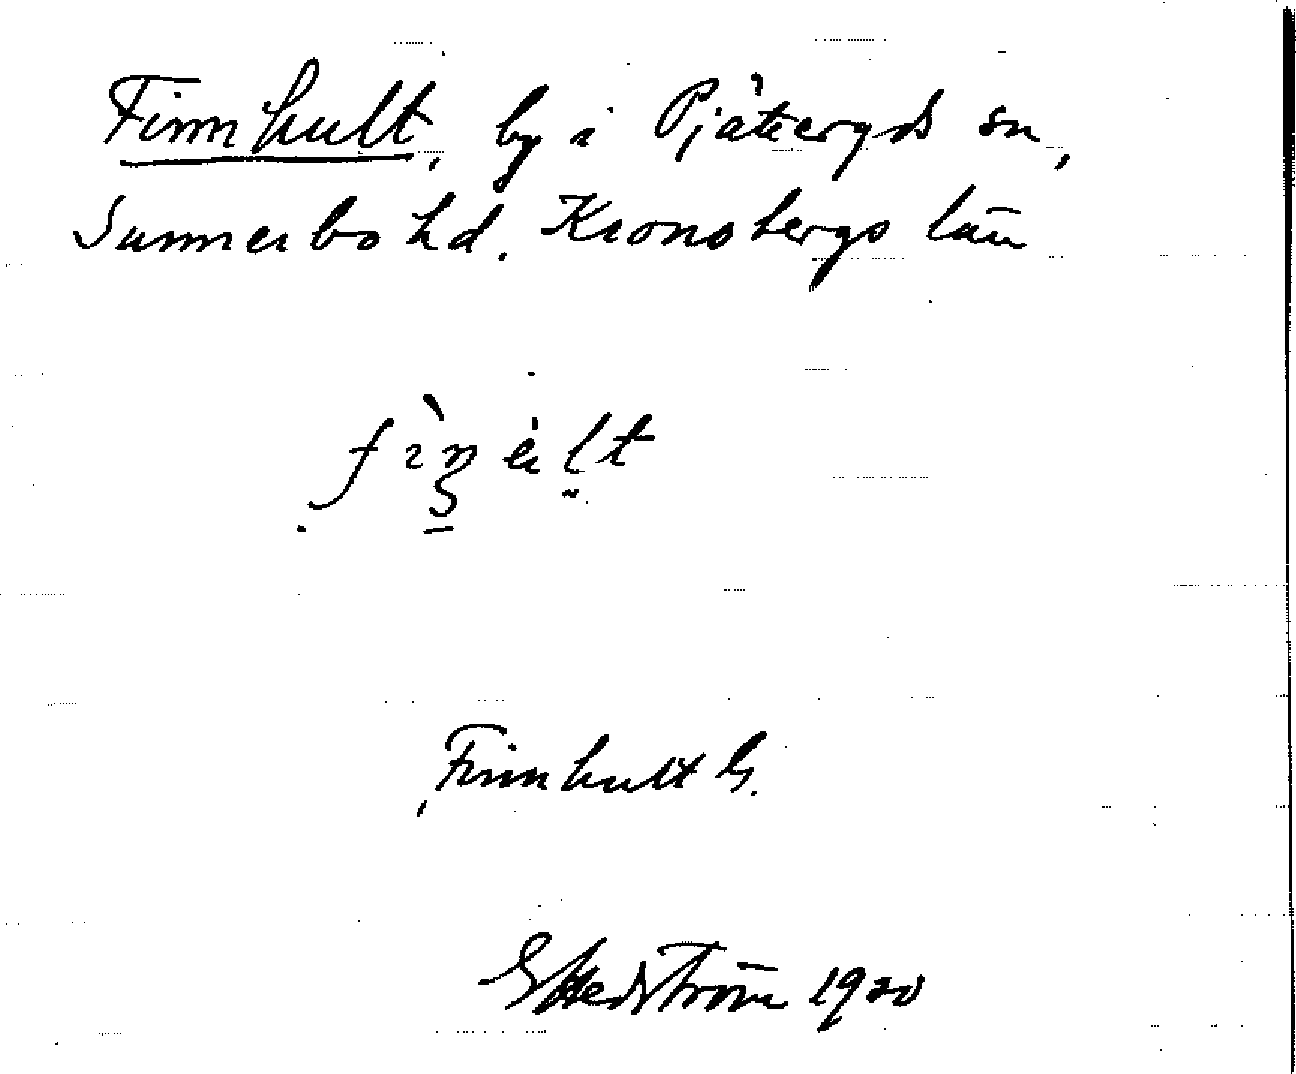 Finnhult, by i Pjätteryds sn,
Sunnerbo hd. Kronobergs län
Finnhult G.
GHedström 1920